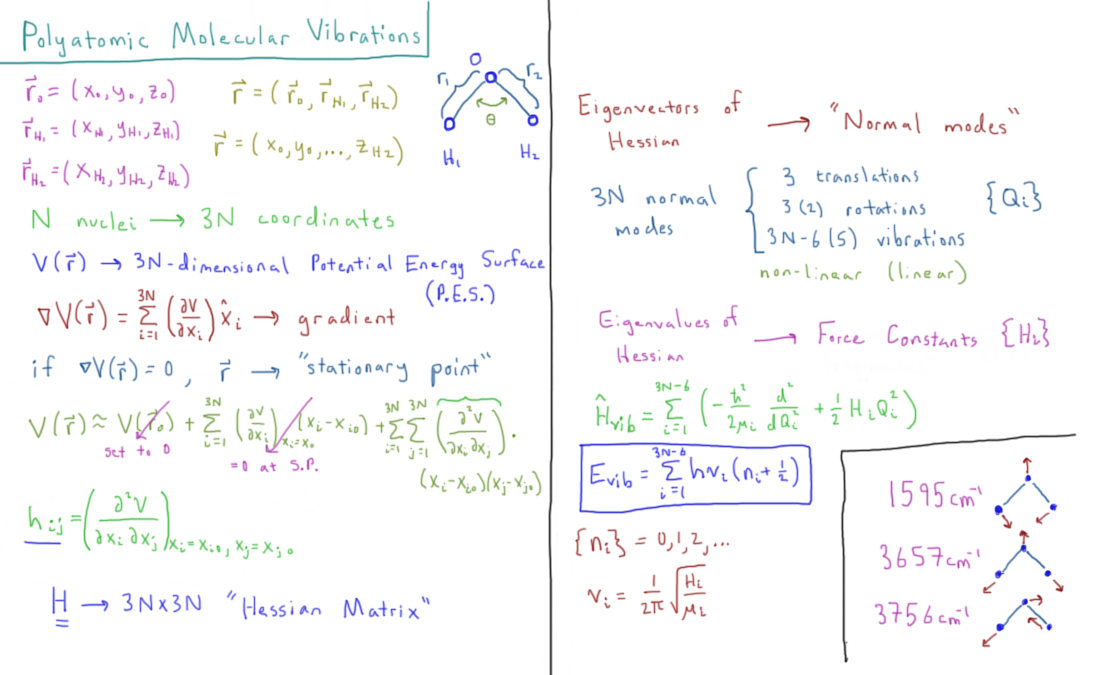 Polyatomic Molecular Vibrations
r⃗₀ = (x₀, y₀, z₀)
r⃗_H₁ = (x_H₁, y_H₁, z_H₁)
r⃗_H₂ = (x_H₂, y_H₂, z_H₂)
r⃗ = (r⃗₀, r⃗_H₁, r⃗_H₂)
r⃗ = (x₀, y₀, ..., z_H₂)
O
r₁
r₂
θ
H₁
H₂
N nuclei → 3N coordinates
V(r⃗) → 3N-dimensional Potential Energy Surface
(P.E.S.)
∇V(r⃗) = Σ_{i=1}^{3N} (∂V/∂x_i) x̂_i → gradient
if ∇V(r⃗) = 0, r⃗ → "stationary point"
V(r⃗) ≈ V(r⃗₀) + Σ_{i=1}^{3N} (∂V/∂x_i)_{x_i=x_0} (x_i - x_{i0}) + Σ_{i=1}^{3N} Σ_{j=1}^{3N} (∂²V/∂x_i ∂x_j) .
set to 0
=0 at S.P.
(x_i - x_{i0})(x_j - x_{j0})
h_{ij} = (∂²V/∂x_i ∂x_j)_{x_i=x_{i0}, x_j=x_{j0}}
H → 3N×3N "Hessian Matrix"
Eigenvectors of
Hessian
→ "Normal modes"
3N normal
modes
3 translations
3(2) rotations
3N-6(5) vibrations
{Q_i}
non-linear (linear)
Eigenvalues of
Hessian
→ Force Constants {H_i}
Ĥ_vib = Σ_{i=1}^{3N-6} (-ħ²/2μ_i d²/dQ_i² + ½ H_i Q_i²)
E_vib = Σ_{i=1}^{3N-6} hν_i (n_i + ½)
{n_i} = 0, 1, 2, ...
ν_i = 1/2π √(H_i/μ_i)
1595 cm⁻¹
3657 cm⁻¹
3756 cm⁻¹